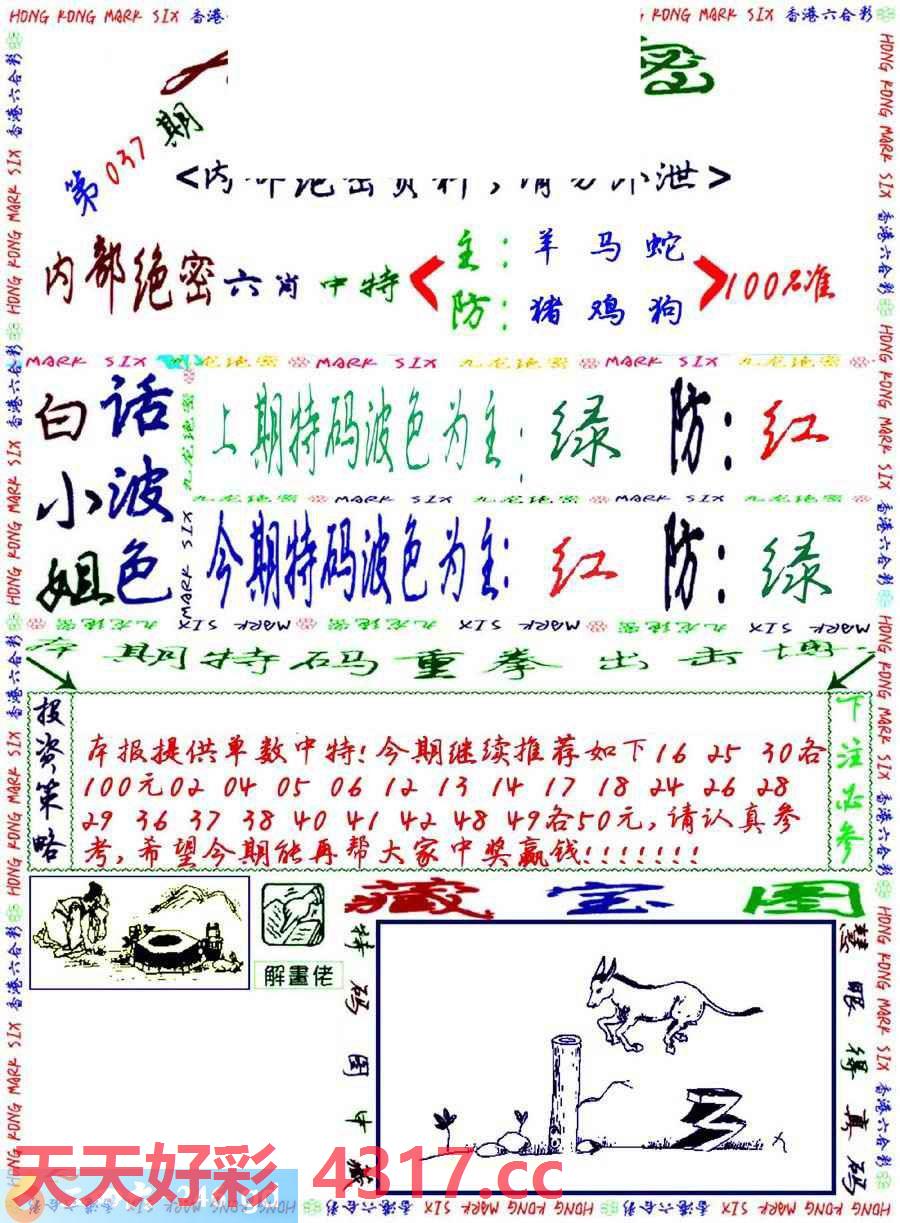 HONG KONG MARK SIX 香港六合彩
第037期
密
<内部绝密资料,请勿外泄>
内部绝密六肖中特
主:羊马蛇
防:猪鸡狗
100%准
MARK SIX 九龙绝密 MARK SIX 九龙绝密 MARK SIX 九龙绝密
白话
小波
姐色
上期特码波色为主:绿 防:红
九龙绝密 MARK SIX 九龙绝密 MARK SIX 九龙绝密
今期特码波色为主:红 防:绿
本期特码重拳出击博
投资策略
本报提供单数中特!今期继续推荐如下16 25 30各
100元02 04 05 06 12 13 14 17 18 24 26 28
29 36 37 38 40 41 42 48 49各50元,请认真参
考,希望今期能再帮大家中奖赢钱!!!!!!!
下注必参
解畫佬
藏宝图
特码图中藏
慧眼得真码
天天好彩 4317.cc